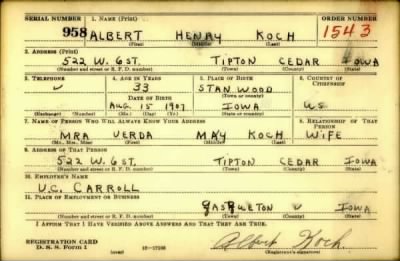 SERIAL NUMBER 1. NAME (Print) ORDER NUMBER
958 ALBERT HENRY KOCH 1543
(First) (Middle) (Last)
2. ADDRESS (Print)
522 W. 6 ST. TIPTON CEDAR IOWA
(Number and street or R. F. D. number) (Town) (County) (State)
3. TELEPHONE 4. AGE IN YEARS 5. PLACE OF BIRTH 6. COUNTRY OF CITIZENSHIP
33 STANWOOD
DATE OF BIRTH (Town or county)
AUG 15 1907 IOWA US
(Exchange) (Number) (Mo.) (Day) (Yr.) (State or country)
7. NAME OF PERSON WHO WILL ALWAYS KNOW YOUR ADDRESS 8. RELATIONSHIP OF THAT PERSON
MRA VERDA MAY KOCH WIFE
(Mr., Mrs., Miss) (First) (Middle) (Last)
9. ADDRESS OF THAT PERSON
522 W. 6 ST. TIPTON CEDAR IOWA
(Number and street or R. F. D. number) (Town) (County) (State)
10. EMPLOYER'S NAME
V.C. CARROLL
11. PLACE OF EMPLOYMENT OR BUSINESS
IOWA
(Number and street or R. F. D. number) (Town) (County) (State)
I AFFIRM THAT I HAVE VERIFIED ABOVE ANSWERS AND THAT THEY ARE TRUE.
REGISTRATION CARD
D. S. S. Form 1 Albert Koch
(over) (Registrant's signature)